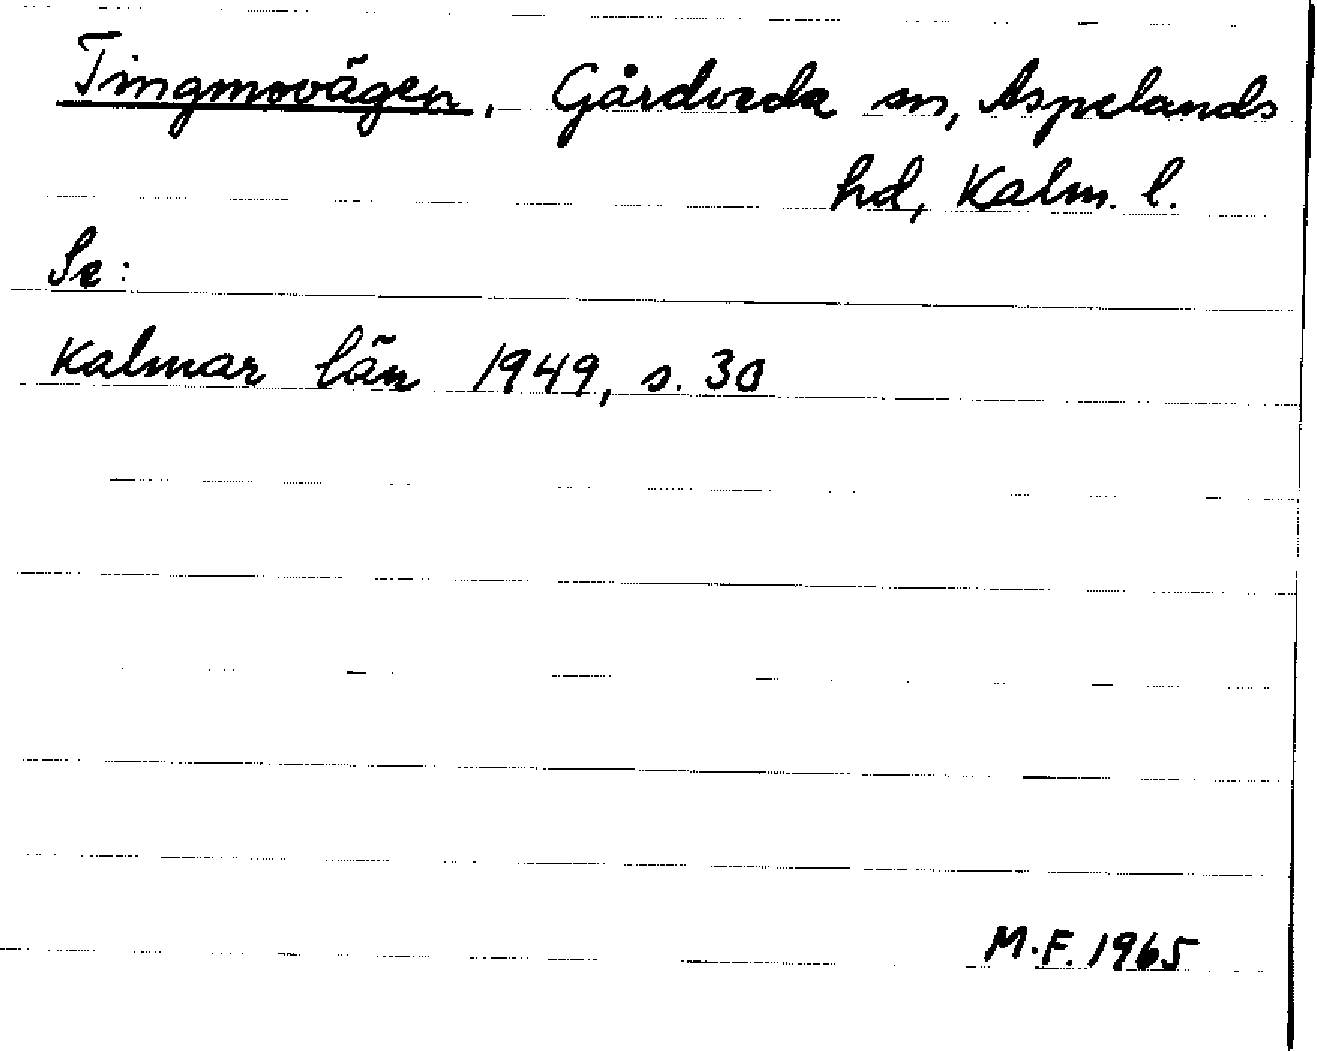 Tingmovägen. Gårdveda sn, Aspelands
hd, Kalm. l.
Se:
Kalmar län 1949, s. 30
M.F. 1965